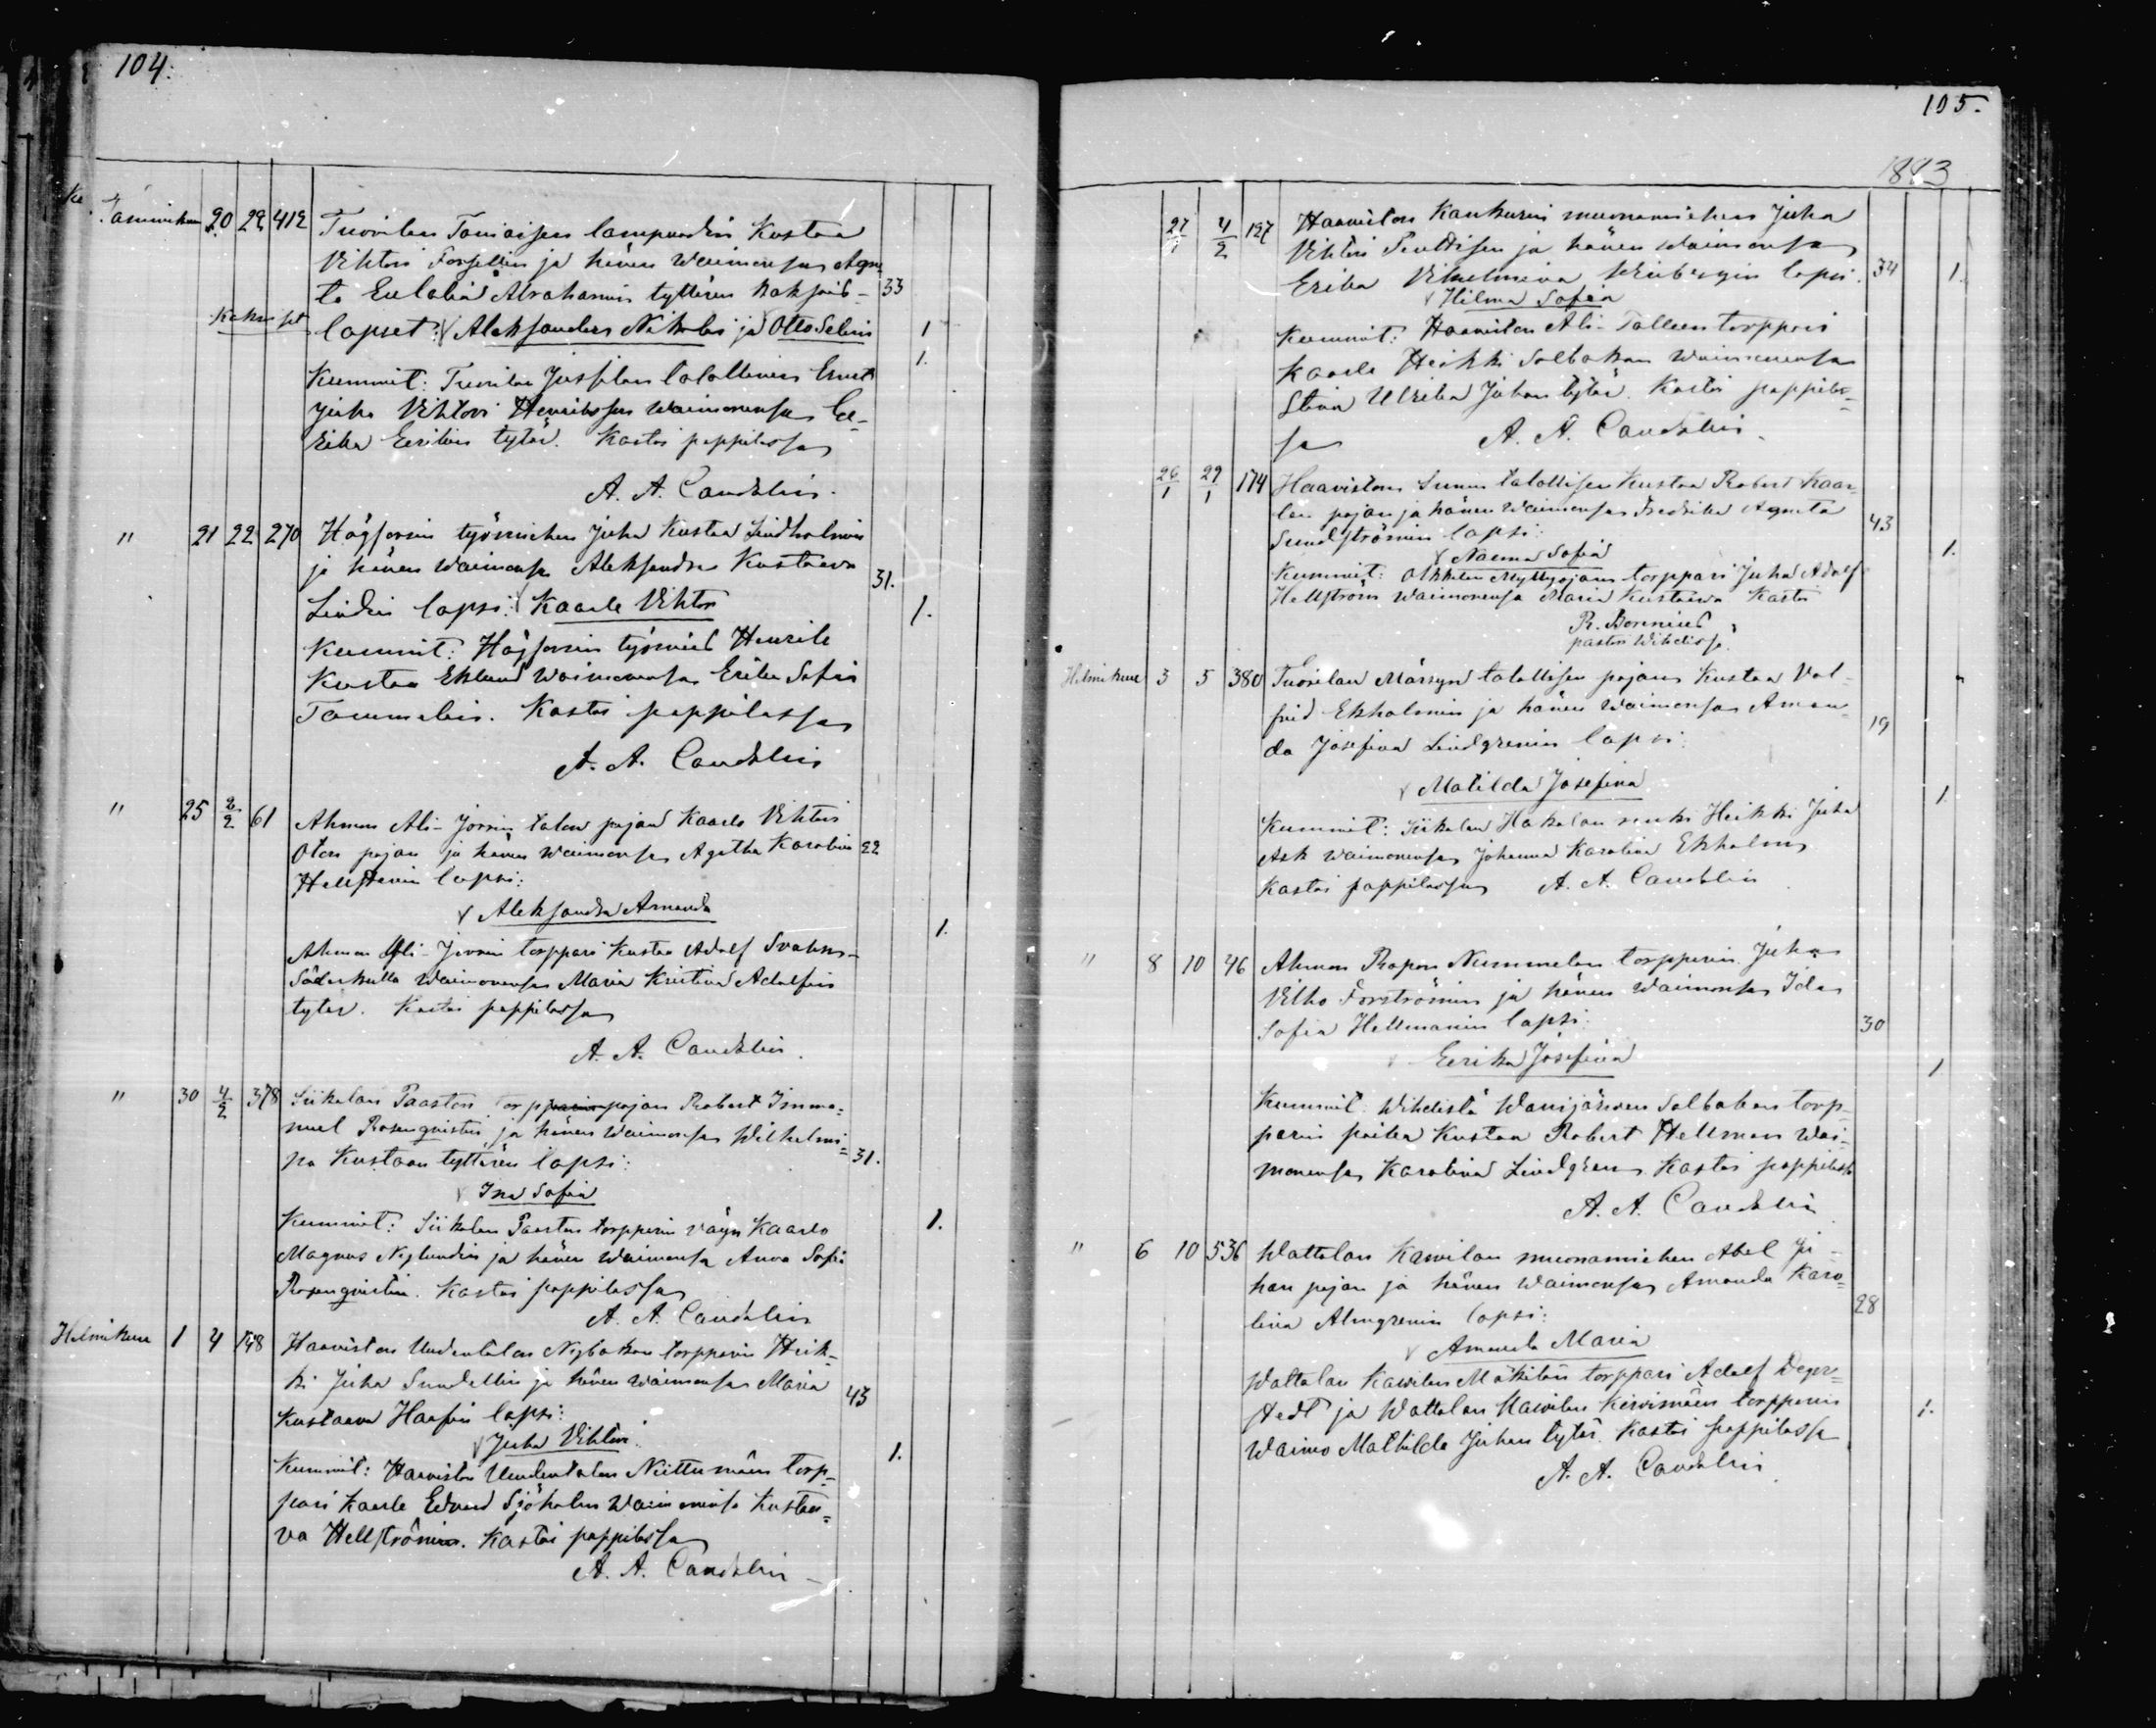 104.
Tammikuu 20 29 412 Tuorilan Tomoisen lampuodin Kustaa
Vihtori Forsellin ja hänen waimonsa Agne
ta Eulalia Abrahamin tyttären kaksois- 33
Kaksoset lapset: Aleksander Nikolai ja Otto Selim 1
1.
Kummit: Tuorilan Jussilan talollinen Ernst
Juho Vihtori Henriksson waimonensa Ee-
rika Eerikin tytär. Kastoi pappilassa
A. A. Candelin.
" 21 22 270 Högforsin työmiehen Juha Kustaa Lindholmin
ja hänen waimonsa Aleksandra Kustaava 31.
Lindin lapsi: Kaarle Vihtor 1.
Kummit: Högforsin työmies Henrik
Kustaa Eklund waimonensa Erika Sofia
Tammelin. Kastoi pappilassa
A. A. Candelin
" 25 2/2 61 Ahmon Ali-Jorrin talon pojan Kaarlo Vihtori
Oton pojan ja hänen waimonsa Agatha Karolina 22
Hellstenin lapsi:
Aleksandra Amanda 1.
Ahmon Ali-Jorrin torppari Kustaa Adolf
Söderkulla waimonensa Maria Kristina Adolfin
tytär. Kastoi pappilassa
A. A. Candelin.
" 30 4/2 378 Siikalan Paaston torpparin pojan Robert Imma=
nuel Rosenqvistin ja hänen waimonsa Wilhelmi=
na Kustaan tyttären lapsi: 31.
Ina Sofia
Kummit: Siikalan Paaston torpparin vävy Kaarlo 1.
Magnus Nylundin ja hänen waimonsa Anna Sofia
Rosenqvistin. Kastoi pappilassa
A. A. Candelin
Helmikuu 1 4 148 Haaviston Uudentalon Nybakan torpparin Heik-
ki Juha Sundellin ja hänen waimonsa Maria 43
Kustaava Haafin lapsi:
Juha Vihtori 1.
Kummit: Haaviston Uudentalon Niittumäen torp-
pari Kaarle Edvard Sjöholm waimonensa Kustaa=
va Hellströmin. Kastoi pappilassa
A. A. Candelin
105.
1883
27/1 4/2 127 Haaviston Kankurin muonamiehen Juha
Vihtori Penttisen ja hänen waimonsa
Erika Vilhelmina lapsi. 34 1.
Hilma Sofia
Kummit: Haaviston Ali-Talleen torppari
Kaarle Heikki Salbakan waimonensa
Stina Ulrika Juhan tytär. Kastoi pappilas=
sa A. A. Candelin.
26/1 29/1 174 Haaviston talollisen Kustaa Robert Kaar=
lon pojan ja hänen waimonsa Fredrika Agneta 43
Sundströmin lapsi:
Nanna Sofia 1.
Kummit: Olkkalan Myllyojan torppari Juha Adolf
Hellström waimonensa Maria Kustaava Kastoi
R. Borenius
pastori Wihdissä.
Helmikuu 3 5 380 Tuorilan Märsyn talollisen pojan Kustaa Val-
frid Ekholmin ja hänen waimonsa Aman= 19
da Josefina Lindgrenin lapsi:
Matilda Josefina 1.
Kummit: Siikalan Hakalan renki Heikki Juha
Ask waimonensa Johanna Karolina Ekholm
Kastoi pappilassa A. A. Candelin
" 8 10 46 Ahmon Ropon Nummelan torpparin Juha
Vilho Forströmin ja hänen waimonsa Ida
Sofia Hellmanin lapsi: 30
Eerika Josefina 1
Kummit. Wihdistä Wanjärwen Salbakan torp-
parin poika Kustaa Robert Hellman wai=
monensa Karolina Lindgren. Kastoi pappilassa
A. A. Candelin
" 6 10 536 Wattolan Kawilan muonamiehen Abel Ju-
han pojan ja hänen waimonsa Amanda Karo=
lina Almgrenin lapsi: 28
Amanda Maria
Wattolan Kawilan Mäkilän torppari Adolf Deger=
stedt ja Wattolan Kawilan Kiwimäen torpparin 1.
Waimo Mathilda Juhan tytär. Kastoi pappilassa
A. A. Candelin